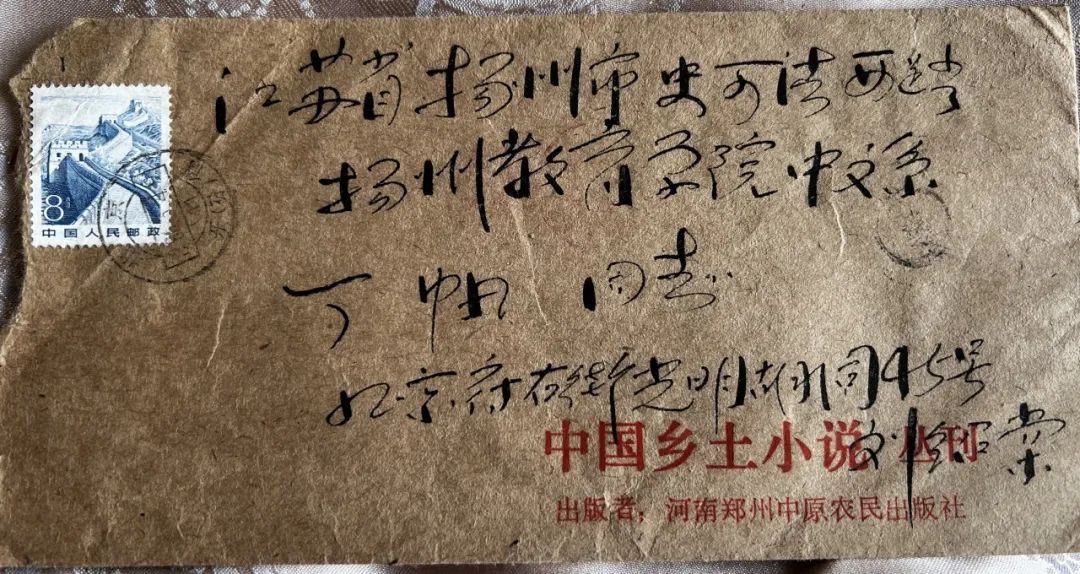 江苏省扬州市史可法西路
扬州教育学院中文系
丁帆 同志
北京府右街光明胡同45号
刘绍棠
中国乡土小说丛刊
出版者：河南郑州中原农民出版社
8分
中国人民邮政